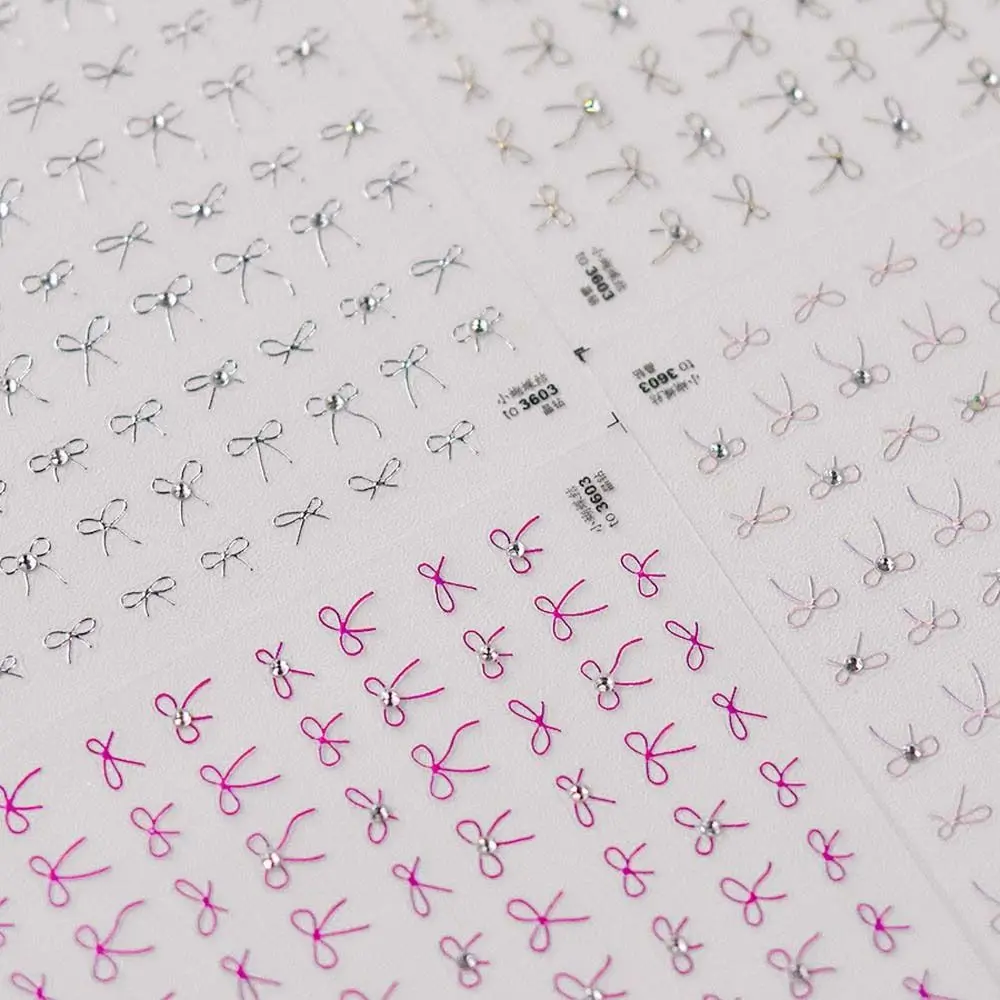 小蝴蝶结
to 3603
小蝴蝶结
to 3603
晶钻
小蝴蝶结
to 3603
晶钻
小蝴蝶结
to 3603
晶钻